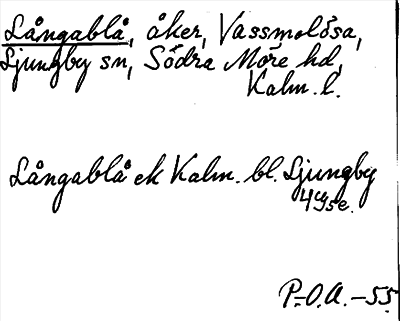 Långablå, åker, Vassmolösa,
Ljungby sn, Södra Möre hd,
Kalm. l.
Långablå ek Kalm. bl. Ljungby
4 9 se.
P.-O.A. -55